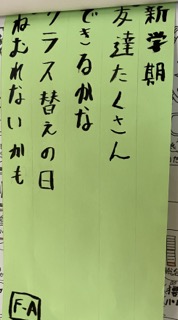 新学期
友達たくさん
できるかな
クラス替えの日
ねむれないかも
F-A